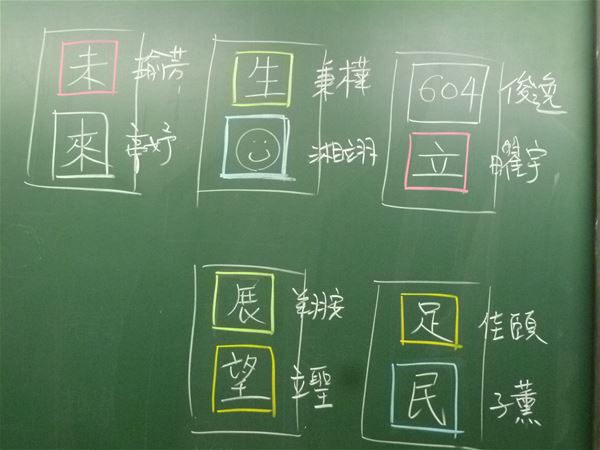 未 瑜芳
來 妤
生 樺
湘翊
604 俊逸
立 曜宇
展 翔安
望 聖
足 佳頤
民 子薰